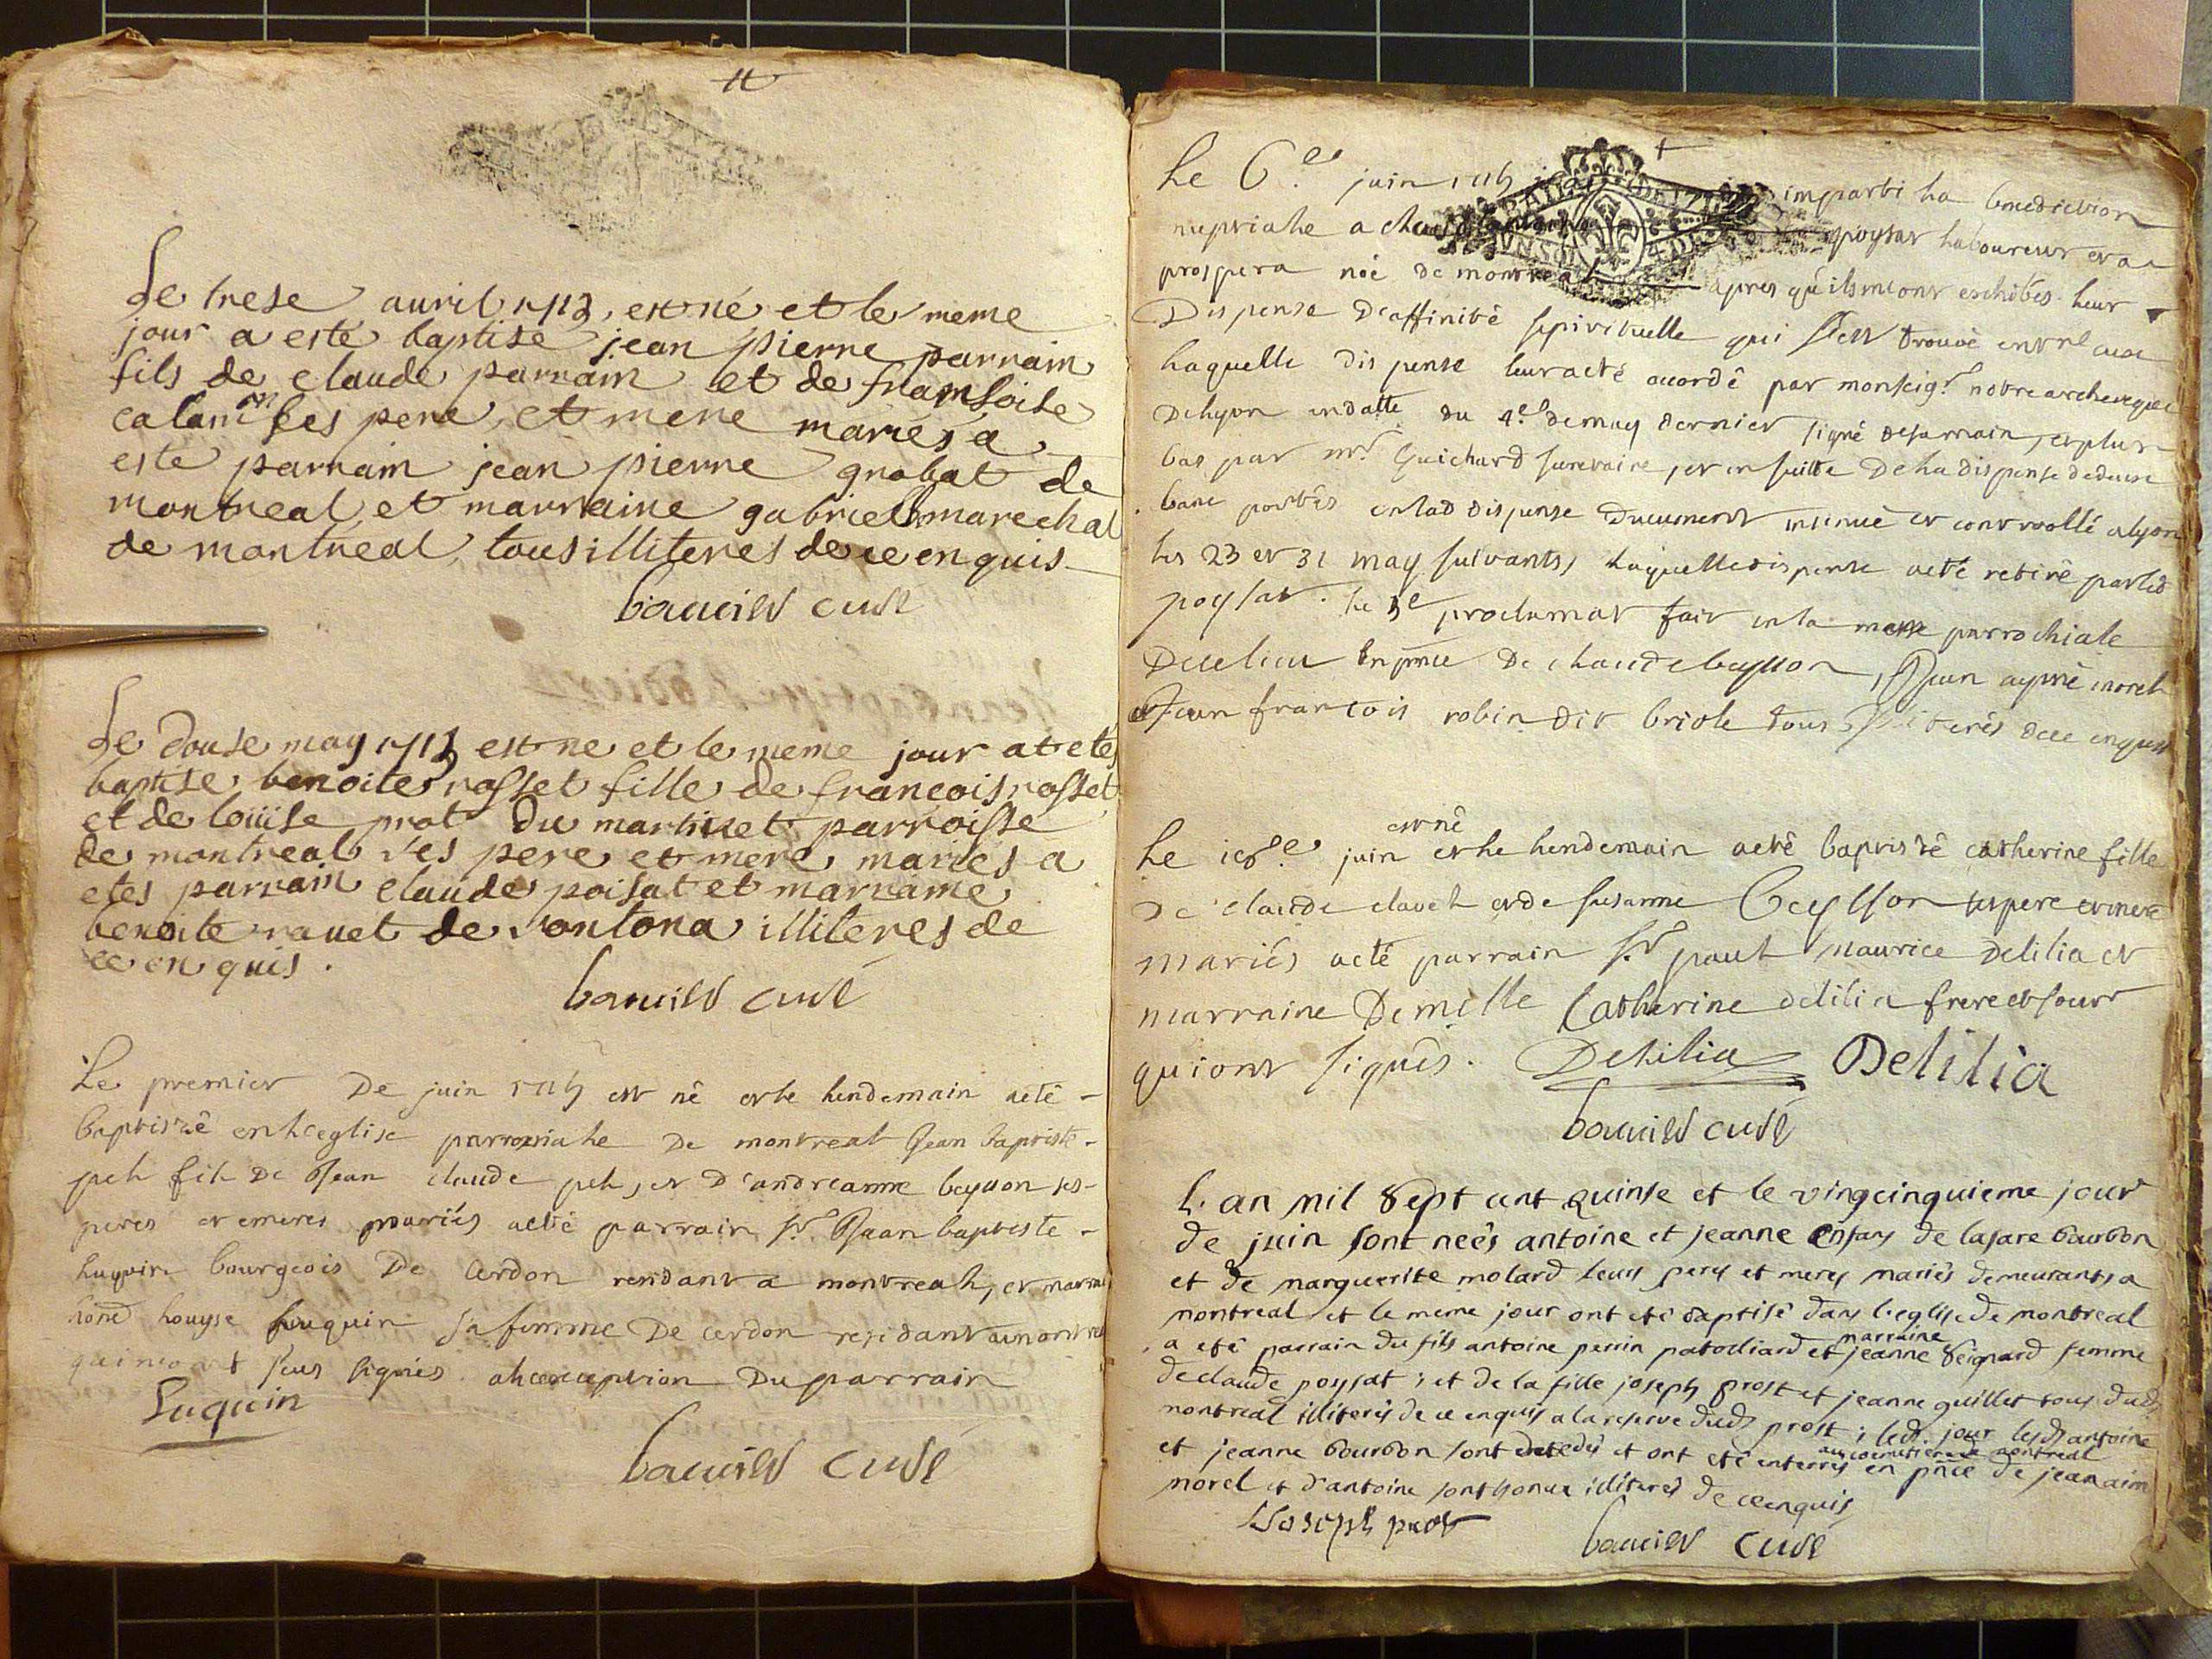 Le trese auril 1715 est né et le meme
jour a esté baptise jean pierre parrain
fils de claude parrain et de fransoise
calam ses pere et mere mariés a
este parrain jean pierre grobat de
montreal et marraine gabriell marechal
de montreal tous illiteres de ce enquis
curé
Le douse may 1715 est ne et le meme jour at etés
baptise benoite rosset fille de francois rosset
et de loüise prat du martinet parroisse
de montreal ses pere et mere mariés a
etes parrain claude poisat et marraine
benoite rauet de sontona illiteres de
ce en quis.
curé
Le premier De juin 1715 est né et le lendemain aeté
baptisée en leglise parroissiale De montreal Jean baptiste
pel fils De Jean claude pel, et D'andreanne beysson ses
peres et emeres mariés aeté parrain sr. Jean baptiste
bourgeois De Cerdon residant a montreal, et marrai
louyse fuquin sa femme De cerdon residant a montrea
sous signés alexception Du parrain
Luquin
curé
Le 6.e juin 1715 imparti la benediction
nuptiale a poysat laboureur et a
prospera noé de montreal apres qu'ils m'ont exchibés leur
Dispense D'affinité spirituelle qui s'est trouvé entre eux
laquelle dispense leur a eté acordé par monseigr. notre archeveque
De lyon en datte du 4.e de may dernier signé De sarrain, et plus
bas par mr. Guichard secretaire, et en suitte De la dispense de deux
banc portés en lad dispense Duement insinué et controollé a lyon
les 23 et 31 may suivants, laquelle dispense aeté retiré par led
poysat. le 3e proclamat fait en la messe parrochiale
De ce lieu En pnce De claude beysson, Jean aymé morel
et Jean francois robin dit briole tous illiterés de ce enquis
est né
Le 18.e juin et le lendemain aeté baptisée catherine fille
De claude clavel et de susanne Beysson ses pere et mere
mariés aeté parrain Sr. paul maurice Delilia et
marraine Demelle Catherine delilia frere et soeur
qui ont signés. Delilia Delilia
curé
L'an mil sept cent quinse et le vingcinquieme jour
de juin sont neés antoine et jeanne enfans de lasare bourbon
et de marguerite molard leurs peres et meres mariés demeurants a
montreal et le meme jour ont eté baptisé dans l'eglise de montreal
marraine
a eté parrain du fils antoine perrin patodiard et jeanne seignard femme
de claude poysat; et de la fille joseph prost et jeanne guillet tous dud
montreal illiterés de ce enquis a la reserve dud prost; led. jour lesd antoine
au cemetiere de montreal
et jeanne bourbon sont decedés et ont eté enterrés en pnce de jean aimé
morel et d'antoine sonthonax illiterés de ce enquis
Joseph prost
curé